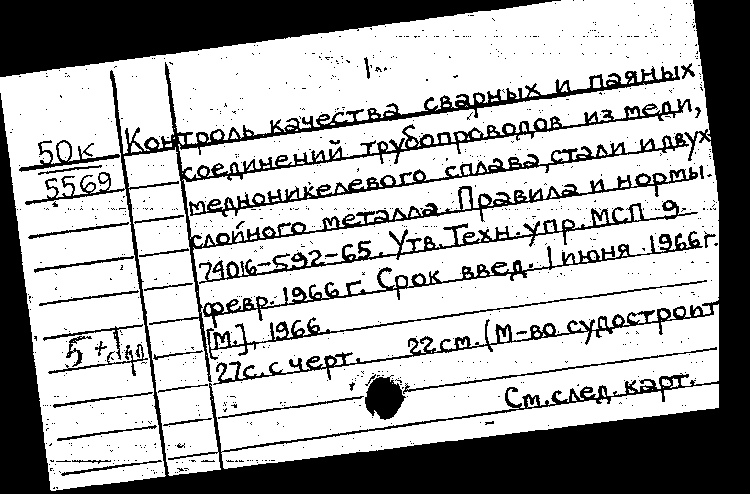 1.
50к Контроль качества сварных и паяных
5569 соединений трубопроводов из меди,
медноникелевого сплава, стали и двух
слойного металла. Правила и нормы.
74016-592-65. Утв. Техн. упр. МСП 9
февр. 1966 г. Срок введ. 1 июня 1966 г.
[М.], 1966.
27с. с черт. 22 см. (М-во судостроит
См. след. карт.